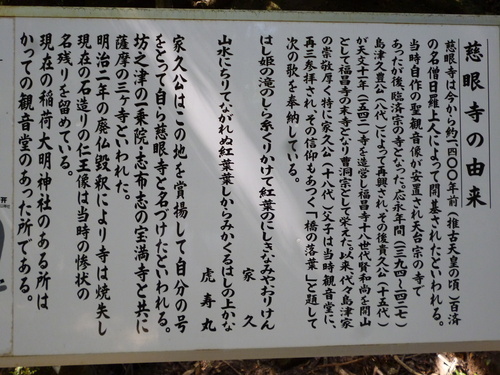 慈眼寺の由来
慈眼寺は今から約一、四〇〇年前(推古天皇の頃)百済
の名僧日羅上人によって開基されたといわれる。
当時自作の聖観音像が安置され天台宗の寺で
あったが後、臨済宗の寺となった。応永年間(一三九四~四二七)
島津久豊公(八代)によって再興され、その後貴久公(十五代)
が天文十一年(一五四二)寺を造営し福昌寺十八世代賢和尚を開山
として福昌寺の末寺となり曹洞宗として栄えた。以来代々島津家
の崇敬厚く特に家久公(十八代)父子は当時観音堂に、
再三参拝され、その信仰もあつく「橋の落葉」と題して
次の歌を奉納している。
はし姫の滝のしら糸くりかけて紅葉のにしきなみやおりけん
家久
山水にちりてながれぬ紅葉葉しからみかくるはしの上かな
虎寿丸
家久公はこの地を賞揚して自分の号
をとって自ら慈眼寺と名づけたといわれる。
坊之津の一乗院・志布志の宝満寺と共に
薩摩の三ヶ寺といわれた。
明治二年の廃仏毀釈により寺は焼失し
現在の石造りの仁王像は当時の惨状の
名残りを留めている。
現在の稲荷大明神社のある所は
かっての観音堂のあった所である。